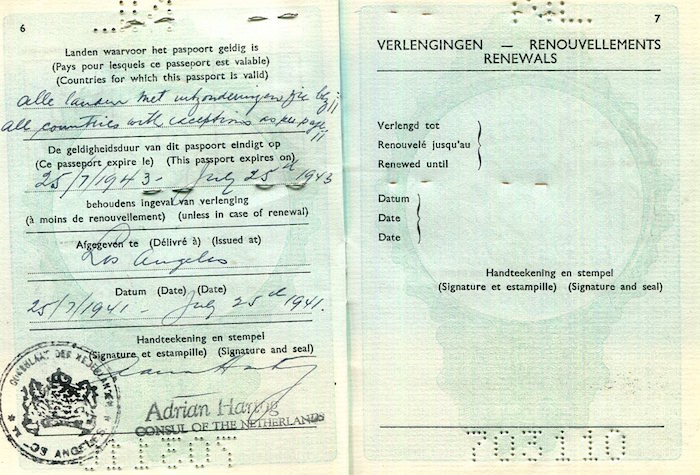 6
Landen waarvoor het paspoort geldig is
(Pays pour lesquels ce passeport est valable)
(Countries for which this passport is valid)
alle landen met uitzonderingen zie blz 11
all countries with exceptions as per page 11
De geldigheidsduur van dit paspoort eindigt op
(Ce passeport expire le) (This passport expires on)
25/7/1943 - July 25th 1943
behoudens ingeval van verlenging
(à moins de renouvellement) (unless in case of renewal)
Afgegeven te (Délivré à) (Issued at)
Los Angeles
Datum (Date) (Date)
25/7/1941 - July 25th 1941.
Handteekening en stempel
(Signature et estampille) (Signature and seal)
CONSULAAT DER NEDERLANDEN
ANGELES
Adrian Hartog
CONSUL OF THE NETHERLANDS
7
VERLENGINGEN — RENOUVELLEMENTS
RENEWALS
Verlengd tot
Renouvelé jusqu'au
Renewed until
Datum
Date
Date
Handteekening en stempel
(Signature et estampille) (Signature and seal)
703110